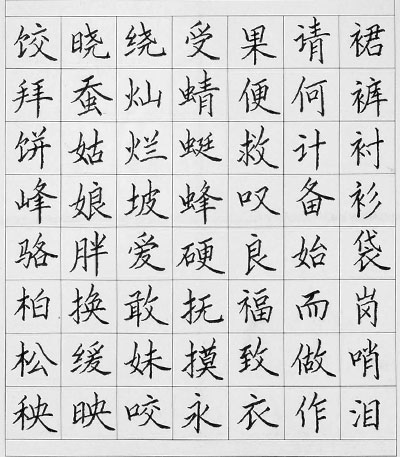 裙裤衬衫袋岗哨泪
请何计备始而做作
果便救叹良福致衣
受蜻蜓蜂硬抚摸永
绕灿烂坡爱敢妹咬
晓蚕姑娘胖换缓映
饺拜饼峰骆柏松秧